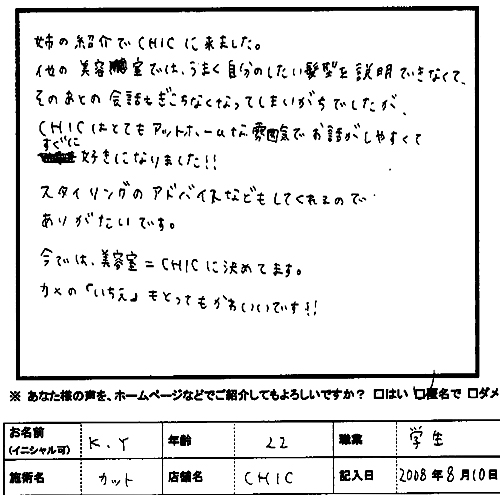 姉の紹介でCHICに来ました。
他の美容室では、うまく自分のしたい髪型を説明できなくて、
そのあとの会話もぎこちなくなってしまいがちでしたが、
CHICはとてもアットホームな雰囲気でお話がしやすくて
すぐに好きになりました!!
スタイリングのアドバイスなどもしてくれるので
ありがたいです。
今では、美容室=CHICに決めてます。
カメの「いちえ」もとってもかわいいです!!
※ あなた様の声を、ホームページなどでご紹介してもよろしいですか? □はい □匿名で □ダメ
お名前(イニシャル可) K.Y 年齢 22 職業 学生
施術名 カット 店舗名 CHIC 記入日 2008年8月10日